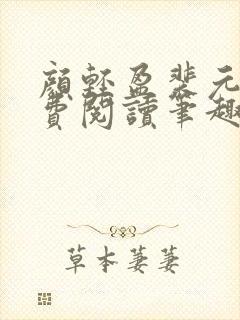 顏輕盈裴元
費閱讀筆趣
草本萋萋